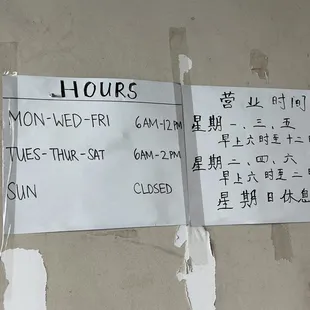 HOURS
MON-WED-FRI 6AM-12PM
TUES-THUR-SAT 6AM-2PM
SUN CLOSED
营业时间
星期一、三、五
早上六时至十二
星期二、四、六
早上六时至二
星期日休息